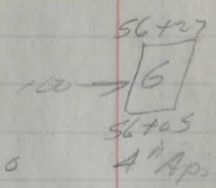 56+27
100 → 6
56+05
0 4" Ap.